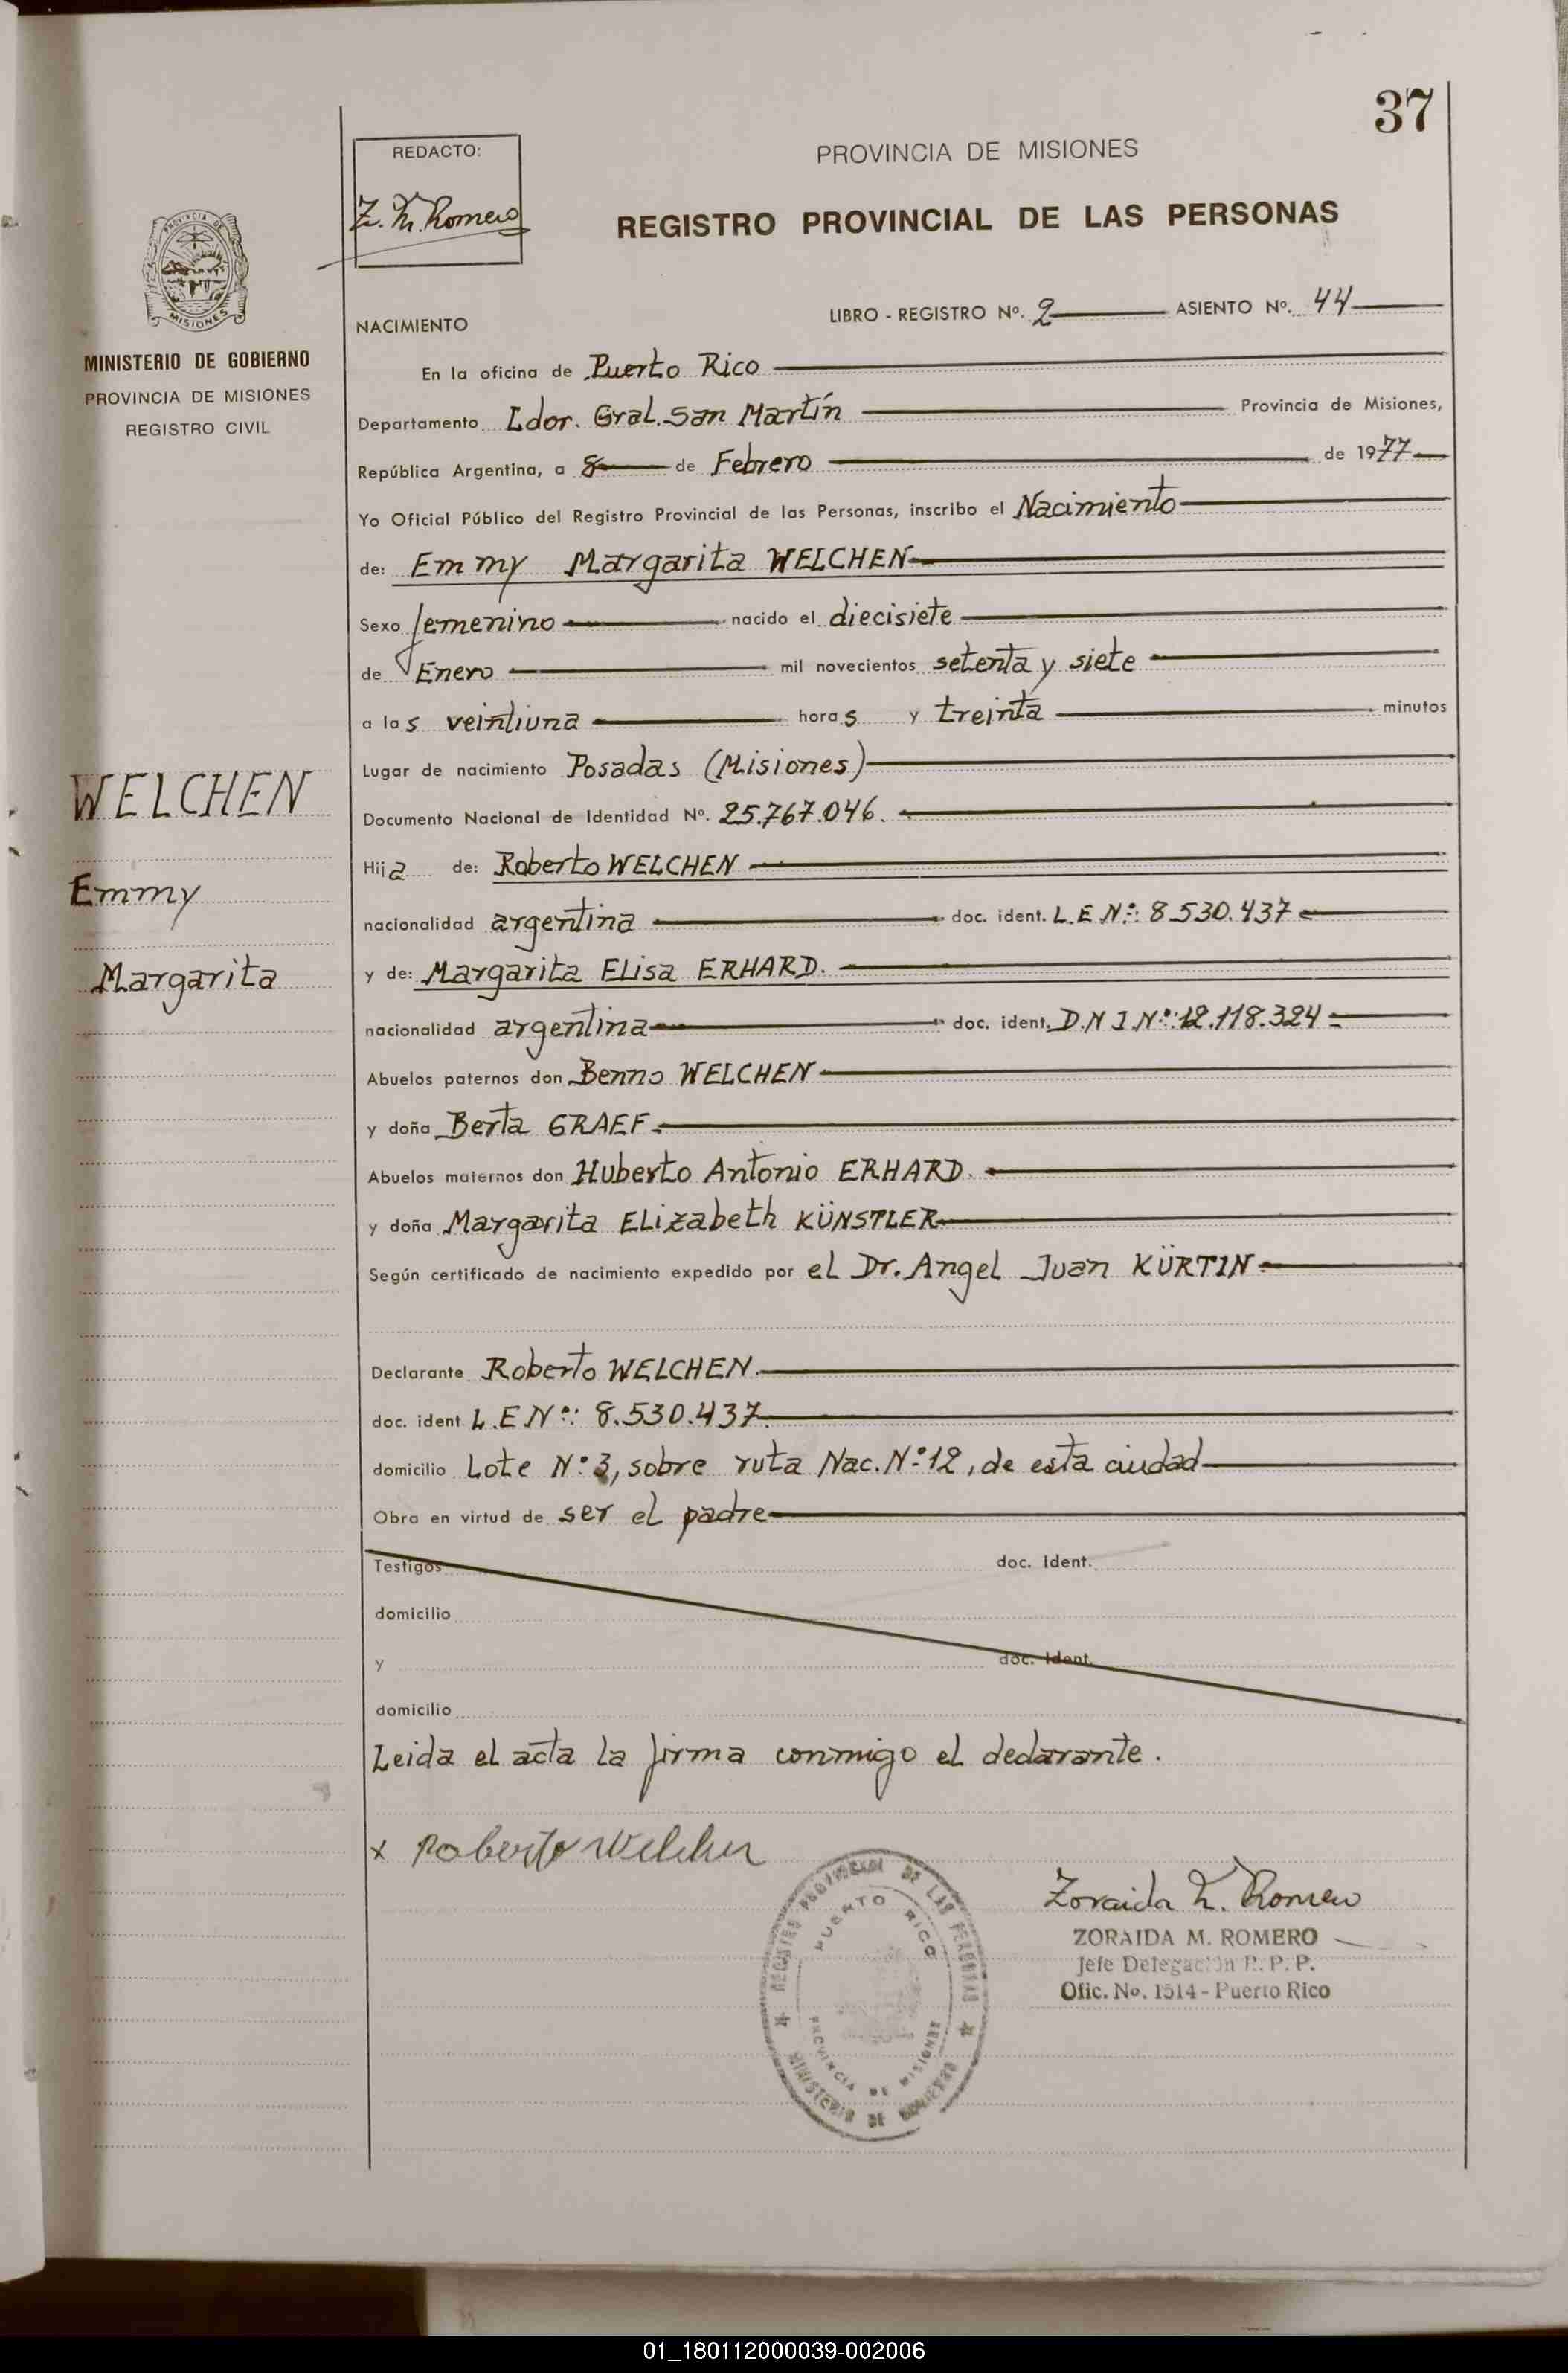 37
REDACTO:
Z. M. Romero
PROVINCIA DE MISIONES
REGISTRO PROVINCIAL DE LAS PERSONAS
PROVINCIA DE
MISIONES
MINISTERIO DE GOBIERNO
PROVINCIA DE MISIONES
REGISTRO CIVIL
WELCHEN
Emmy
Margarita
LIBRO - REGISTRO Nº. 2 ASIENTO Nº. 44
NACIMIENTO
En la oficina de Puerto Rico
Departamento Ldor. Gral. San Martín Provincia de Misiones,
República Argentina, a 8 de Febrero de 1977
Yo Oficial Público del Registro Provincial de las Personas, inscribo el Nacimiento
de: Emmy Margarita WELCHEN
Sexo femenino nacido el diecisiete
de Enero mil novecientos setenta y siete
a las veintiuna horas y treinta minutos
Lugar de nacimiento Posadas (Misiones)
Documento Nacional de Identidad Nº. 25.767.046.
Hija de: Roberto WELCHEN
nacionalidad argentina doc. ident. L.E Nº: 8.530.437
y de: Margarita Elisa ERHARD.
nacionalidad argentina doc. ident. D.N I Nº: 12.118.324
Abuelos paternos don Benno WELCHEN
y doña Berta GRAEF.
Abuelos maternos don Huberto Antonio ERHARD.
y doña Margarita Elizabeth KÜNSTLER
Según certificado de nacimiento expedido por el Dr. Angel Juan KÜRTIN
Declarante Roberto WELCHEN.
doc. ident L.E Nº: 8.530.437.
domicilio Lote Nº 3, sobre ruta Nac. Nº 12, de esta ciudad
Obra en virtud de ser el padre
Testigos doc. Ident.
domicilio
y doc. Ident.
domicilio
Leida el acta la firma conmigo el declarante.
x Roberto Welchen
REGISTRO PROVINCIAL DE LAS PERSONAS
PUERTO RICO
PROVINCIA DE MISIONES
MINISTERIO DE GOBIERNO
Zoraida M. Romero
ZORAIDA M. ROMERO
Jefe Delegación R. P. P.
Ofic. No. 1514 - Puerto Rico
01_180112000039-002006